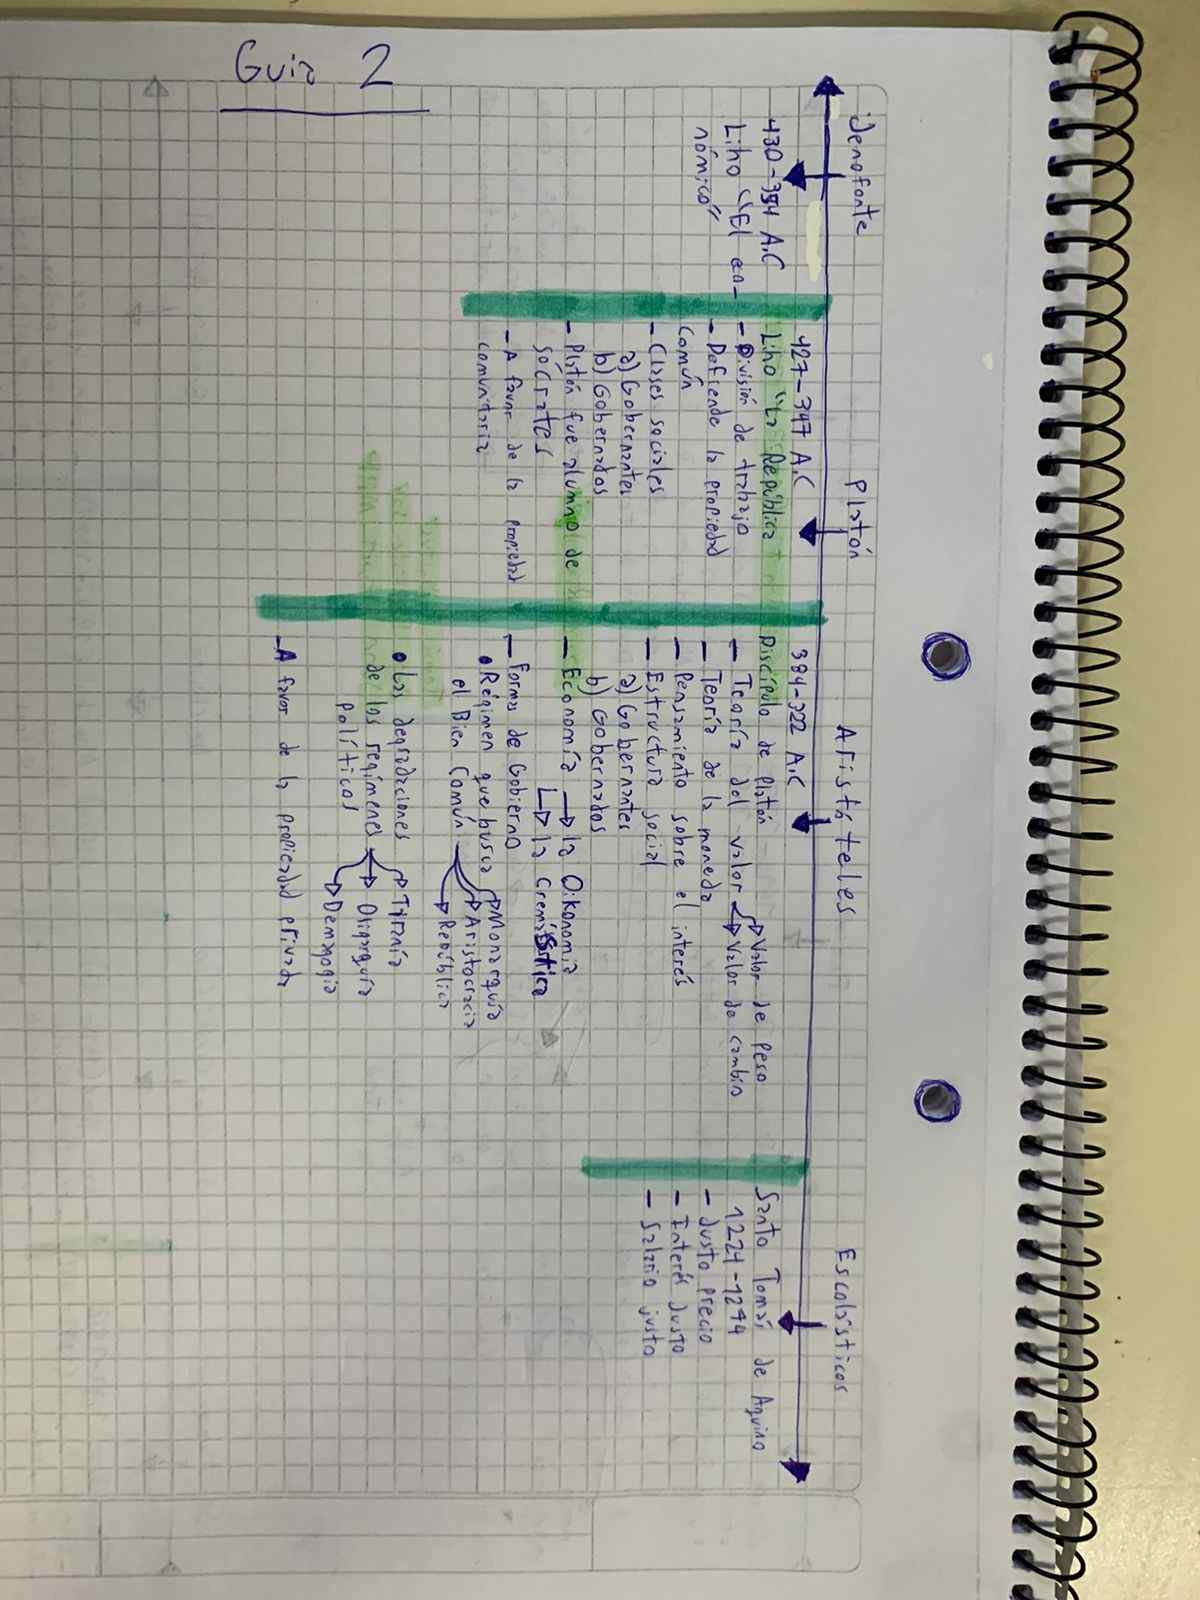 Guia 2
Jenofonte
430-354 A.C
Libro "El eco-
nómico"
Platón
427-347 A.C
Libro "La República"
- División de trabajo
- Defiende la propiedad
Común
- Clases sociales
a) Gobernantes
b) Gobernados
- Platón fue alumno de
Socrates
- A favor de la propiedad
comunitaria
Aristóteles
384-322 A.C
Discípulo de Platón
- Teoría del valor → Valor de Peso
→ Valor de cambio
- Teoría de la moneda
- Pensamiento sobre el interés
- Estructura social
a) Gobernantes
b) Gobernados
- Economía → la Oikonomia
→ la Cremástica
- Formas de Gobierno
• Régimen que busca → Monarquía
el Bien Común → Aristocracia
→ República
• Las degradaciones → Tiranía
de los regímenes → Oligarquía
políticos → Demagogia
- A favor de la propiedad privada
Escolásticos
Santo Tomás de Aquino
1224-1274
- Justo precio
- Interés Justo
- Salario justo